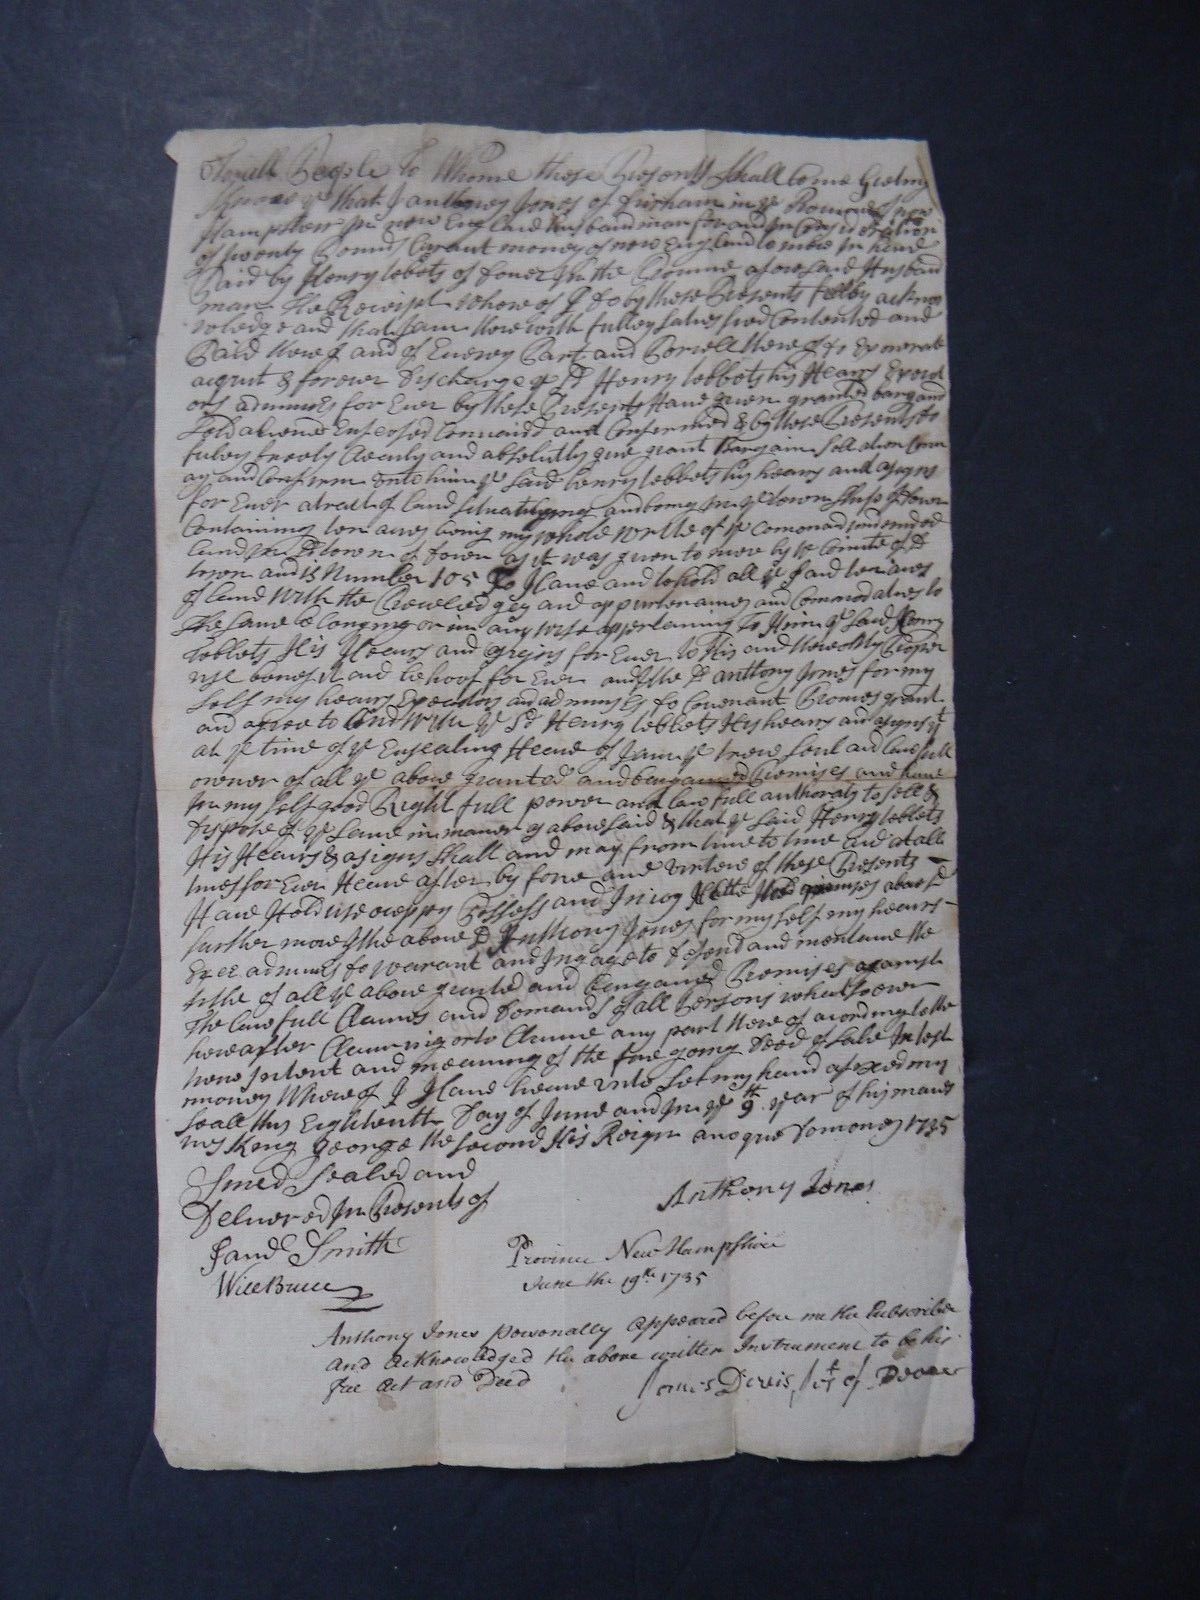 To all People to Whome these Presents Shall Come Greeting
Know ye that I anthoney Jones of durham in ye Province of new
Hampshier In new England husbandman for and In Consideration
of twenty Pounds Curant money of new England to mee In hand
Paid by Henry tebbets of dover In the Provinc afore said Husband
man the Receipt whereof I do by these Presents fully acknow
wledge and that I am Herewith fulley satisfied Contented and
Paid Hereof and of Everey Part and Parcell thereof do Exonerate
aquit & forever discharge ye Sd Henry tebbets his Heairs Execut
ors adminrs for Ever by these Presents Have given granted bargand
sold aliened Enfeofed Convaied and Confermed & by these Presents do
fulley freely Clearly and absolutly give grant Bargain sell alien Conv
ay and Confirm unto him ye said henry tebbets his heairs and asigns
for Ever atract of land situate lying and being In ye town ship of dover
Containing ten acres being my whole of ye Comon and undevided
land In Sd town of dover as it was given to mee by ye Comite of Sd
town and is Number 105 To Have and to hold all ye said ten acres
of land With the and appurtenances and Commodaties to
the same be longing or in any wise appertaining To Him ye said Henry
tebbets His Heairs and asigns for Ever to His and there only Proper
use benefit and behoof for Ever and I the Sd anthony Jones for my
self my heairs Executors and adminrs do Covenant Promes grant
and agree to and With ye Sd Henry tebbets His heairs and asigns yt
at ye time of ye Ensealing Heare of I am ye trew soul and lawfull
owner of all ye above granted and bargained Premises and have
In my self good Right full power and lawfull authoraty to sell &
dispose of ye same in maner as above said & that ye said Henry tebbets
His Heairs & asigns shall and may from time to time and at all
times for Ever Heare after by force and virtew of these Presents
Have Hold use ocuppy Possess and Injoy the above Sd
further more I the above Sd Anthony Jones for my self my heairs
Exec adminrs do warant and Ingage to defend and mentane the
title of all ye above granted and bargand Premises against
The lawfull Claimes and Demands of all Persons whatsoever
hereafter Claiming or to Claime any part there of acording to the
trew Intent and meaning of the fore going Deed of sale In test
mony Whereof I Have heare unto set my hand afexed my
seall this Eighteenth Day of June and In ye 9th year of his maies
tys King George the second His Reign anoque Domoney 1735
Sined Sealed and
Delivered In Presents of
Anthony Jones
Smith
Will Bruce
Province New Hampshire
June the 19th 1735
Anthony Jones personally appeared before me the Subscriber
and acknowledged the above written Instrument to be his
free act and Deed
James Davis Just of Peace